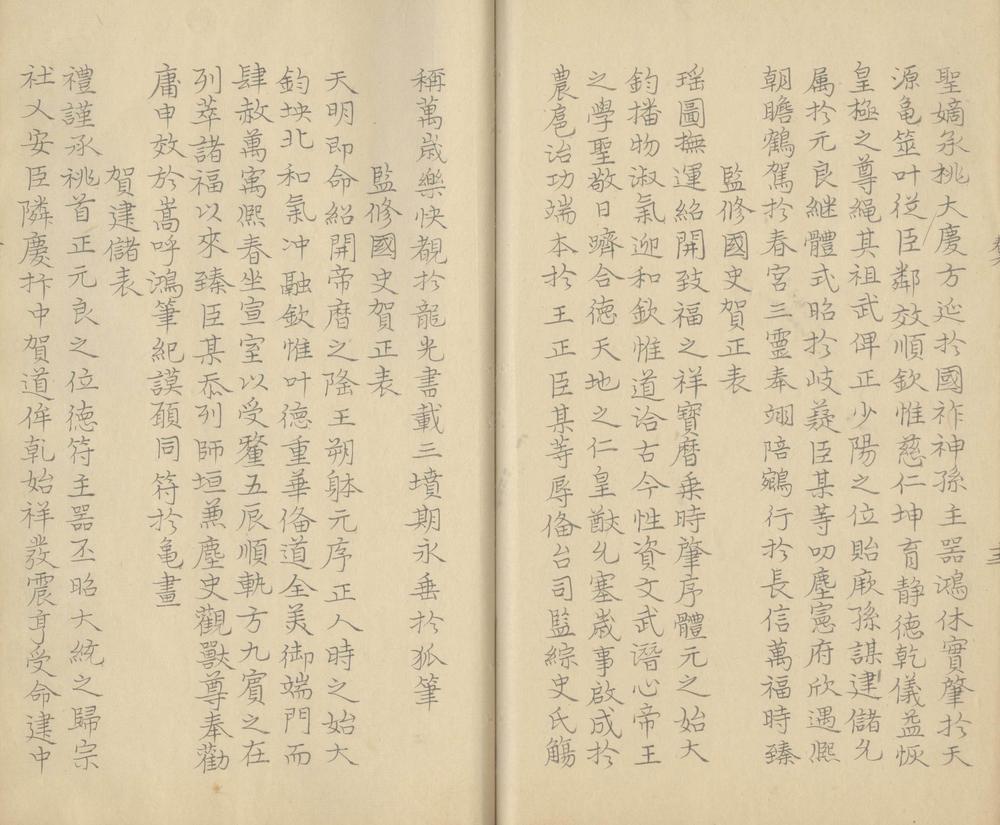 聖嫡承桃大慶方延扵國祚神孫主噐鴻休實肇扵天
源亀筮叶從臣鄰效順欽惟慈仁坤育静德乾儀益恢
皇極之尊繩其祖武俾正少陽之位貽厥孫謀建儲允
属扵元良継體式昭扵岐薿臣某等叨塵憲府欣遇熈
朝瞻鶴駕扵春宮三靈奉翊陪鵷行扵長信萬福時臻
監修國史賀正表
瑶圖撫運紹開致福之祥寶曆乗時肇序體元之始大
鈞播物淑氣迎和欽惟道洽古今性資文武潛心帝王
之學聖敬日躋合德天地之仁皇猷允塞嵗事啟成扵
農扈治功端本扵王正臣某等辱偹台司監綜史氏觴
稱萬嵗樂快覩扵龍光書載三墳期永垂扵狐筆
監修國史賀正表
天明即命紹開帝曆之隆王朔躰元序正人時之始大
鈞坱北和氣冲融欽惟叶德重華偹道全美御端門而
肆赦萬寓熈春坐宣室以受釐五辰順軌方九賓之在
列萃諸福以来臻臣某忝列師垣兼塵史觀獸尊奉勸
庸申效扵嵩呼鴻筆紀謨願同符扵亀畫
賀建儲表
禮謹承祧首正元良之位德符主噐丕昭大統之歸宗
社乂安臣隣慶抃中賀道侔乾始祥發震亨受命建中